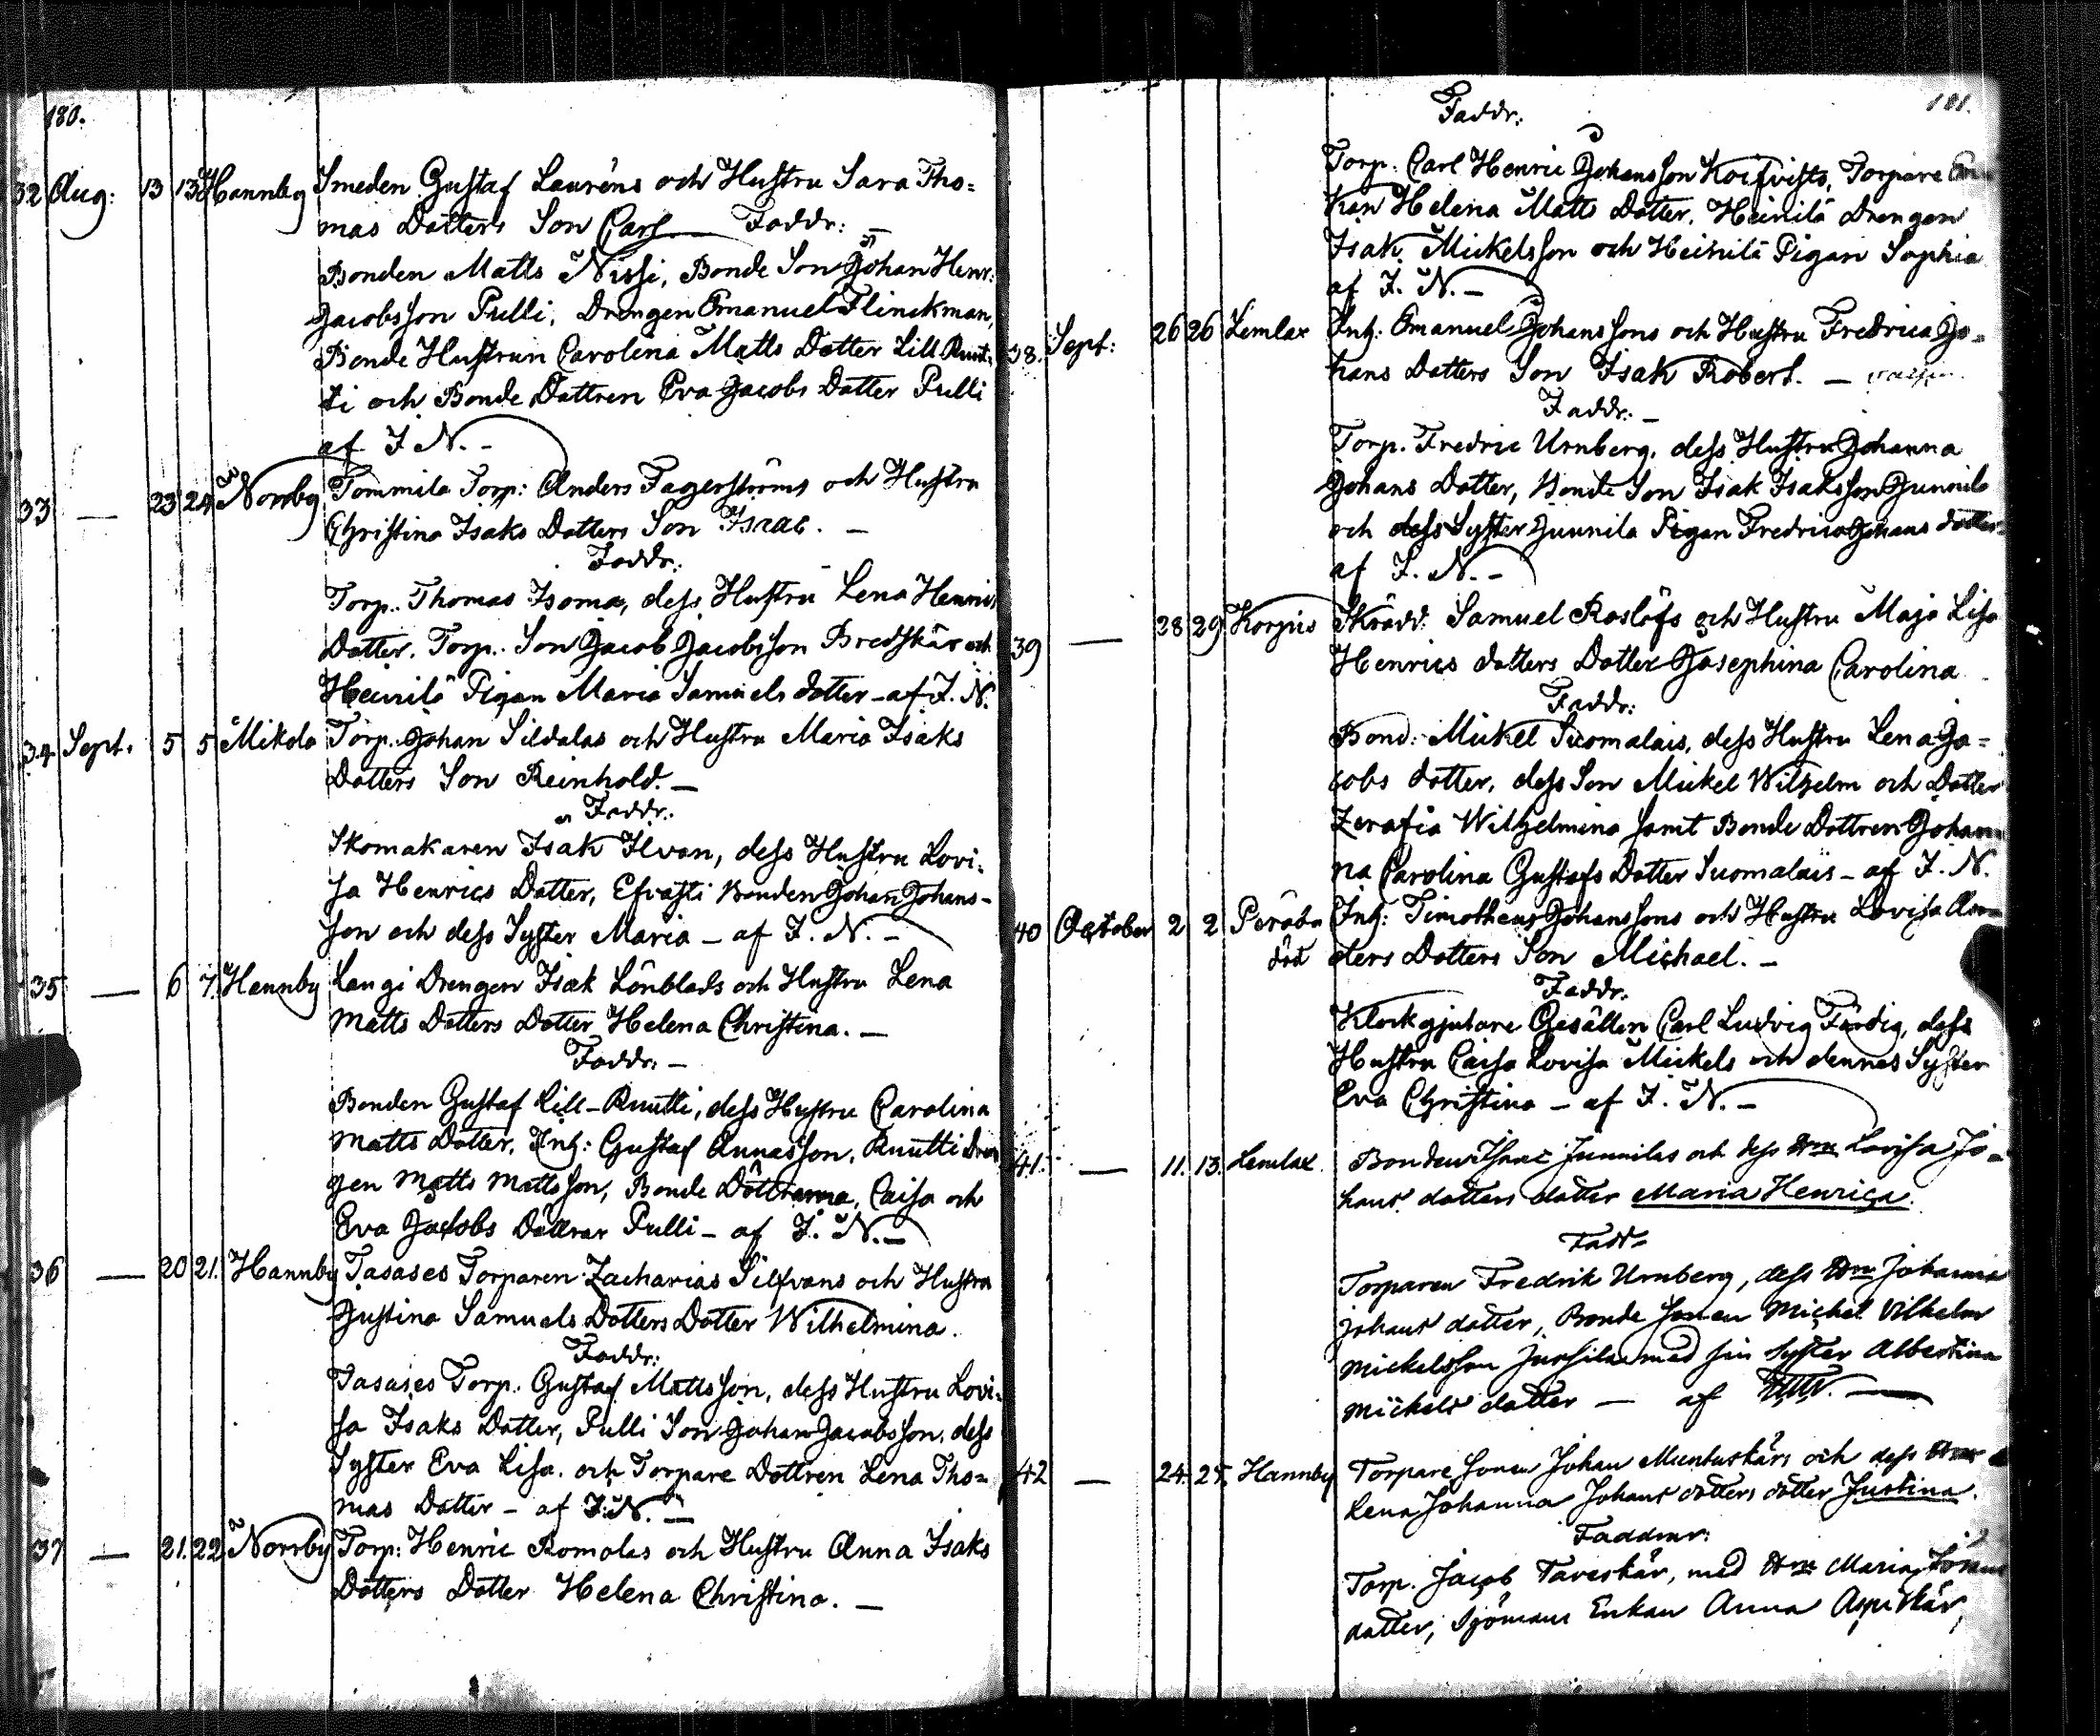 180.
32 Aug: 13 13 Hannby Smeden Gustaf Lauréns och Hustru Sara Tho=
mas Dotters Son Carl. — Faddr:
Bonden Matts Nissi, Bonde Son Johan Henr:
Jacobsson Pulli, Drengen Emanuel Flinckman,
Bonde Hustrun Carolina Matts Dotter Lill Ruut=
ti och Bonde Dottren Eva Jacobs Dotter Pulli
af I. N. –
33 — 23 24 Norrby Tommila Torp: Anders Fagerströms och Hustru
Christina Isaks Dotters Son Isaac. —
Faddr:
Torp. Thomas Isoma, dess Hustru Lena Henrics
Dotter. Torp. Son Jacob Jacobsson Bredskär och
Heinilä Pigan Maria Samuels dotter – af I. N.
34 Sept. 5 5 Mikola Torp. Johan Sildalas och Hustru Maria Isaks
Dotters Son Reinhold. —
Faddr:
Skomakaren Isak Ilvan, dess Hustru Lovi=
sa Henrics Dotter, Bonden Johan Johans-
son och dess Syster Maria – af I. N. –
35 — 6 7. Hannby Langi Drengen Isak Lönblads och Hustru Lena
Matts Dotters Dotter Helena Christina. —
Faddr: –
Bonden Gustaf Lill-Ruutti, dess Hustru Carolina
Matts Dotter, Inh: Gustaf Annasson, Ruutti Dren
gen Matts Mattsson, Bonde Döttrarna, Caisa och
Eva Jacobs Döttrar Pulli – af I. N. –
36 — 20 21. Hannby Tasases Torparen Zacharias Silfvans och Hustru
Justina Samuels Dotters Dotter Wilhelmina.
Faddr:
Tasases Torp. Gustaf Mattsson, dess Hustru Lovi=
sa Isaks Dotter, Pulli Son Johan Jacobsson, dess
Syster Eva Lisa. och Torpare Dottren Lena Tho=
mas Dotter – af I. N. —
37 — 21. 22 Norrby Torp: Henric Romolas och Hustru Anna Isaks
Dotters Dotter Helena Christina. —
181.
Faddr:
Torp: Carl Henric Johansson Korfvists, Torpare En
kan Helena Matts Dotter, Heinilä Drengen
Isak Mickelsson och Heinilä Pigan Sophia
af I. N. –
38. Sept: 26 26 Lemlax Inh: Emanuel Johanssons och Hustru Fredrica Jo=
hans Dotters Son Isak Robert. —
Faddr: –
Torp. Fredric Urnberg, dess Hustru Johanna
Johans Dotter, Bonde Son Isak Isaksson Junnila
och dess Syster Junnila Pigan Fredrica Johans dotter
af I. N. –
39 — 28 29 Korpis Skrädd: Samuel Roslöfs och Hustru Maja Lisa
Henrics dotters Dotter Josephina Carolina
Faddr:
Bond: Mickel Suomalais, dess Hustru Lena Ja=
cobs dotter, dess Son Mickel Wilhelm och Dotter
Zerafia Wilhelmina samt Bonde Dottren Johan
na Carolina Gustafs Dotter Suomalais – af I. N.
40 October 2 2 Inh: Timotheus Johanssons och Hustru Lovisa An
ders Dotters Son Michael. –
Faddr:
Klockgjutare Gesällen Carl Ludvig Färdig, dess
Hustru Caisa Lovisa Mickels och dennas Syster
Eva Christina – af I. N. –
41. — 11. 13. Lemlax Bonden Isaac Junnilas och dess Hru Lovisa Jo=
hans dotters dotter Maria Henrica.
Fadr
Torparen Fredrik Urnberg, dess Hru Johanna
Johans dotter, Bonde Sonen Michel Vilhelm
Mickelsson Jussila med sin Syster Albertina
Mickels dotter — af
42 — 24. 25. Hannby Torpare Sonen Johan Muntuskärs och dess Hru
Lena Johanna Johans dotters dotter Justina.
Faddrar:
Torp. Jacob Taveskär, med Hru Maria Johans
dotter, Sjömans Enkan Anna Aspskär,